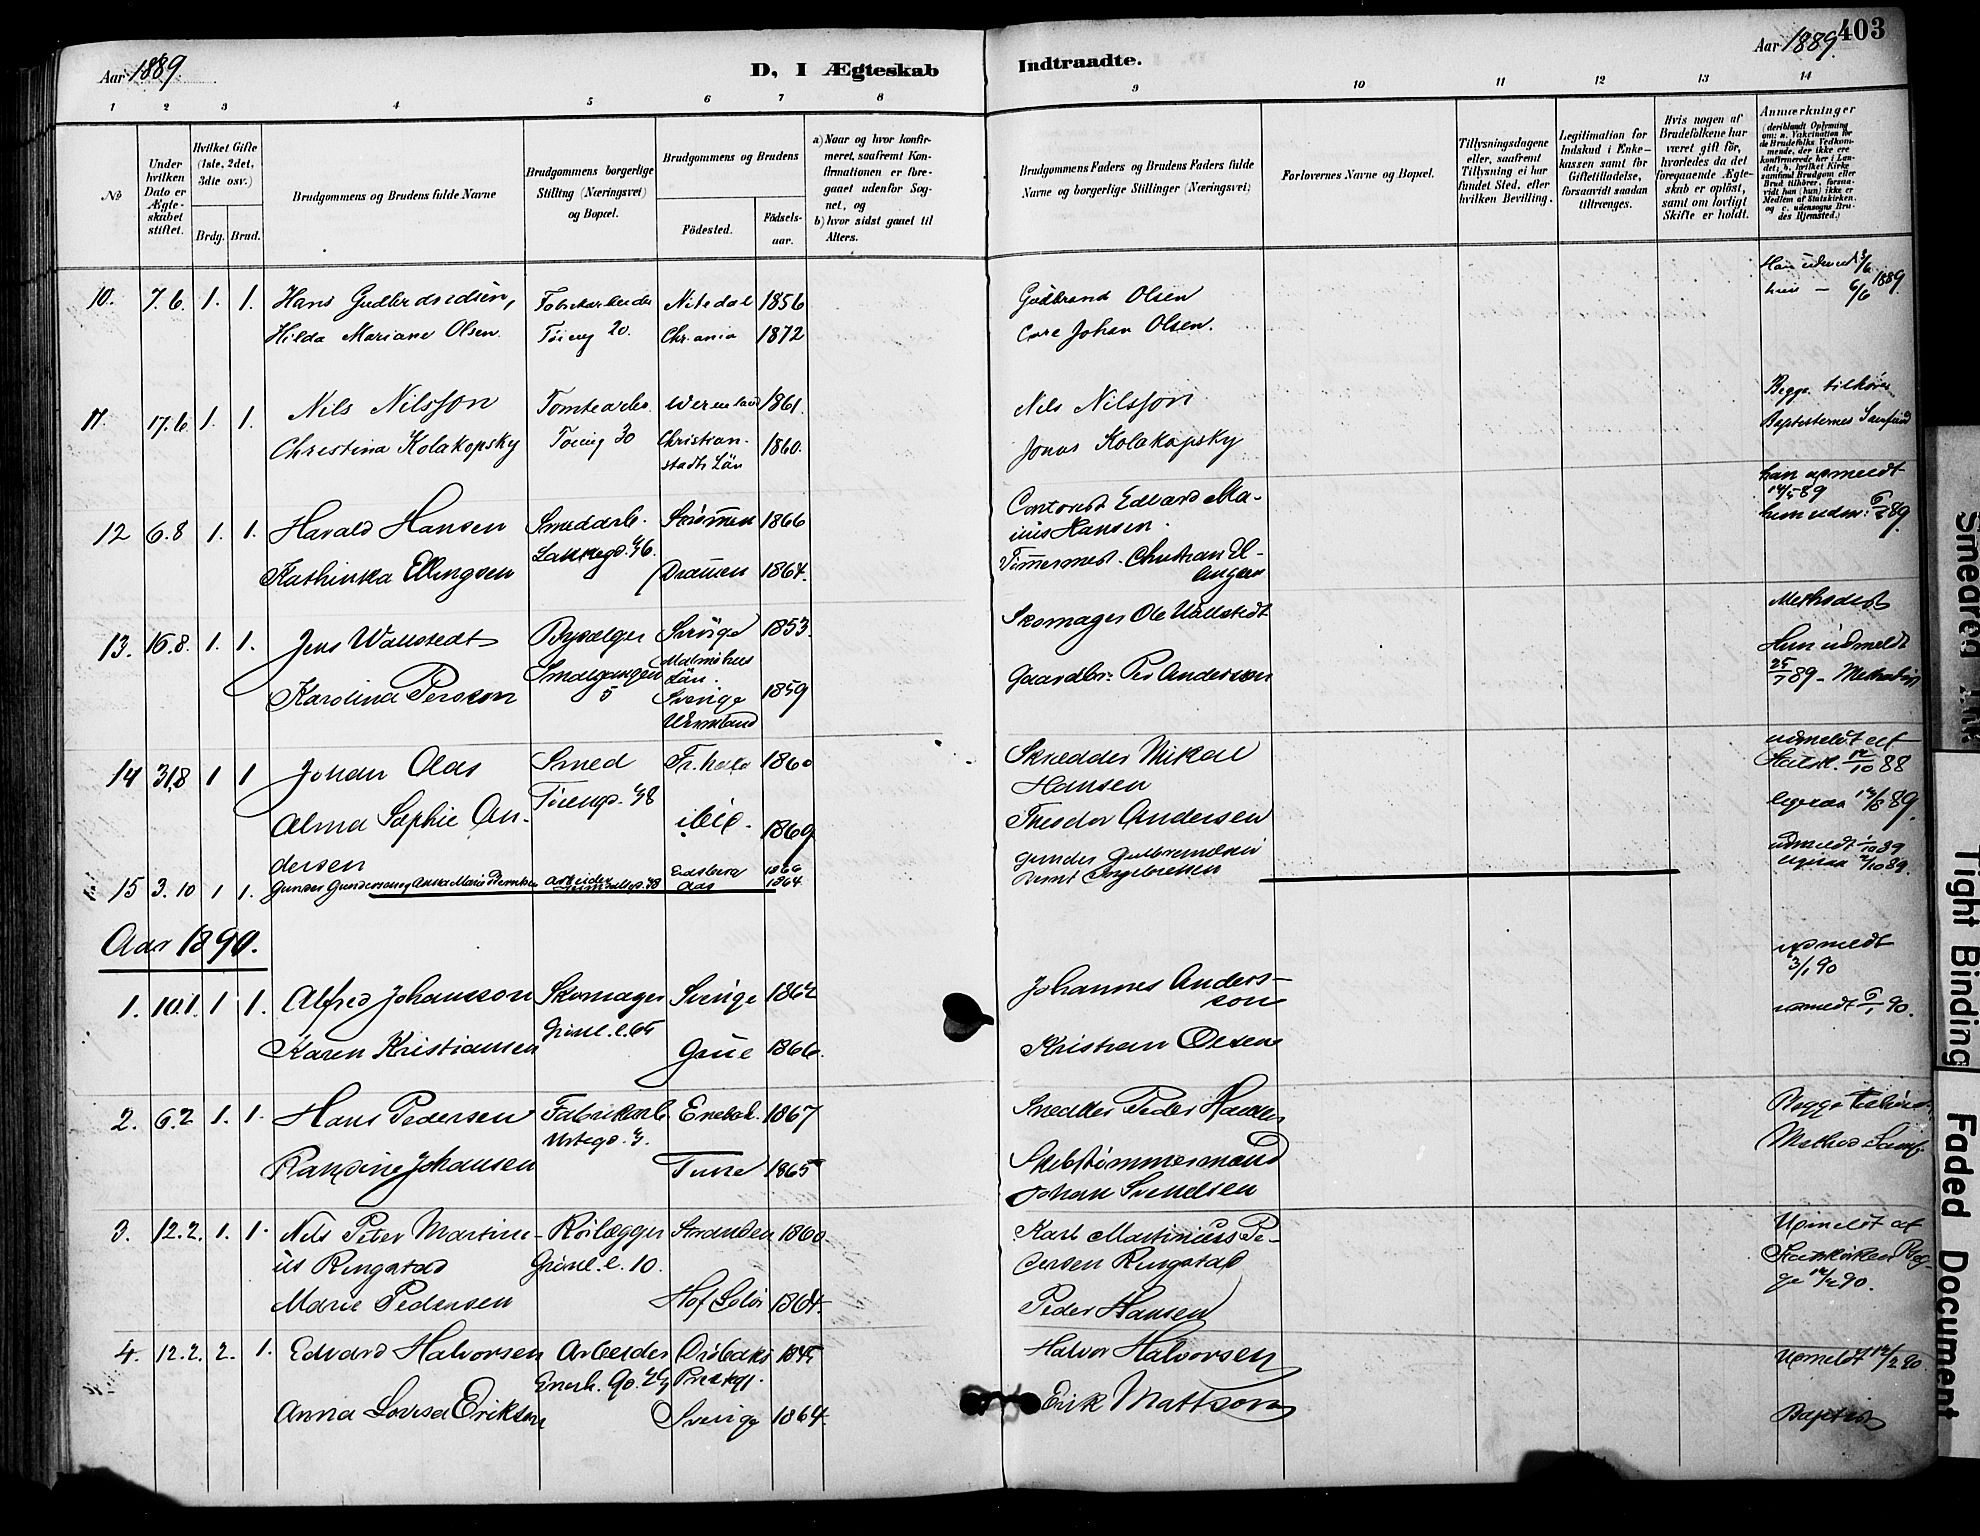 Aar 1889.
D, I Ægteskab
Indtraadte.
Aar 1889.
403
1 2 3 4 5 6 7 8
9 10 11 12 13 14
No
Under hvilken Dato er Ægteskabet stiftet.
Hvilket Gifte (1ste, 2det, 3die osv.)
Brdg. Brud.
Brudgommens og Brudens fulde Navne
Brudgommens borgerlige Stilling (Næringsvei) og Bopæl.
Brudgommens og Brudens
Födested.
Födselsaar.
a) Naar og hvor konfirmeret, saafremt Konfirmationen er foregaaet udenfor Sognet, og
b) hvor sidst gaaet til Alters.
Brudgommens Faders og Brudens Faders fulde Navne og borgerlige Stillinger (Næringsvei)
Forlovernes Navne og Bopæl.
Tillysningsdagene eller, saafremt Tillysning ei har fundet Sted, efter hvilken Bevilling.
Legitimation for Indskud i Enkekassen samt for Giftetilladelse, forsaavidt saadan tiltrænges.
Hvis nogen af Brudefolkene har været gift för, hvorledes da det foregaaende Ægteskab er oplöst, samt om lovligt Skifte er holdt.
Anmærkninger
(deriblandt Oplysning om: a. Vakcination for de Brudefolks Vedkommende, der ikke ere konfirmerede her i Landet; b. hvilket Kirkesamfund Brudgom eller Brud tilhörer, forsaavidt han (hun) ikke er Medlem af Statskirken, og c. udensogns Brudes Hjemsted.)
10. 7.6. 1. 1. Hans Gudbrandsen, Nitedal 1856 Gudbrand Olsen 1889
Hilda Mariane Olsen. Töieng 20. Chr.ania 1872 Johan Olsen. 6/6
11. 17.6. 1. 1. Nils Nilsson Tomtearb. 1861. Nils Nilsson Begge tilhörer
Christina Kolakopsky Töieng 30 Christianstads Län 1860. Jonas Kolakopsky Baptisternes Samfund
12 6.8 1. 1. Harald Hansen Smedarb. 1866 Contorist Edvard Marius Hansen. han udmeldt 14/5 89
Kathinka Ellingsen Lakkegd. 46. Drammen 1864. Tömmermd. Christian Ellingsen hun udm. 89.
13. 16.8. 1. 1. Jens Wallstedt Bysælger Sverige Malmöhus Län. 1853. Skomager Ole Wallstedt Methodist
Karolina Persson Smalgangen 5 Sverige Wermland 1859 Gaardbr. Per Andersson Hun udmeldt 25/7 89 - Methodist
14 31.8 1 1 Johan Aas Smed Fr.hald 1860 Skrædder Mikal Hansen udmeldt af Statsk. 12/10 88
Alma Sophie Andersen Töiengd. 48 ibid. 1869 Theodor Andersen ligesaa 89.
15 3.10 1 1. Gunder Gundersen og Anna Marie Berntsen Arbeider Eidsberg Aas 1866 1864 Gunder Gulbrandsen Bernt Ingebretsen udmeldt 89 ligesaa 2/10 89.
Aar 1890.
1. 10.1. 1 1. Alfred Johansson Skomager Sverige 1862 Johannes Andersson udmeldt 3/1 90
Karen Kristiansen Grönl. l. 65 Grue 1866. Kristian Olsen udmeldt 90.
2. 6.2 1. 1. Hans Pedersen Fabrikarb. Enebak. 1867 Snedker Peder Hansen Begge tilhörer
Randine Johansen Urtegd. Tune 1865 Skibstömmermand Johan Svendsen Method. Samf.
3. 12.2. 1. 1. Nils Peter Martinius Ringstad Rörlægger Stranden 1860 Karl Martinius Pedersen Ringstad Udmeldt af Statskirken Begge 12/2 90.
Marie Pedersen Grönl. l. 10. Hof Solör 1864. Peder Hansen
4. 12.2. 2. 1. Edvard Halvorsen Arbeider Dröbaks Præstegj. 1845 Halvor Halvorsen Udmeldt 12/2 90
Anna Lovisa Erikson Sverige 1864. Erik Mattson Baptist
Smeared Ink
Tight Binding
Faded Document